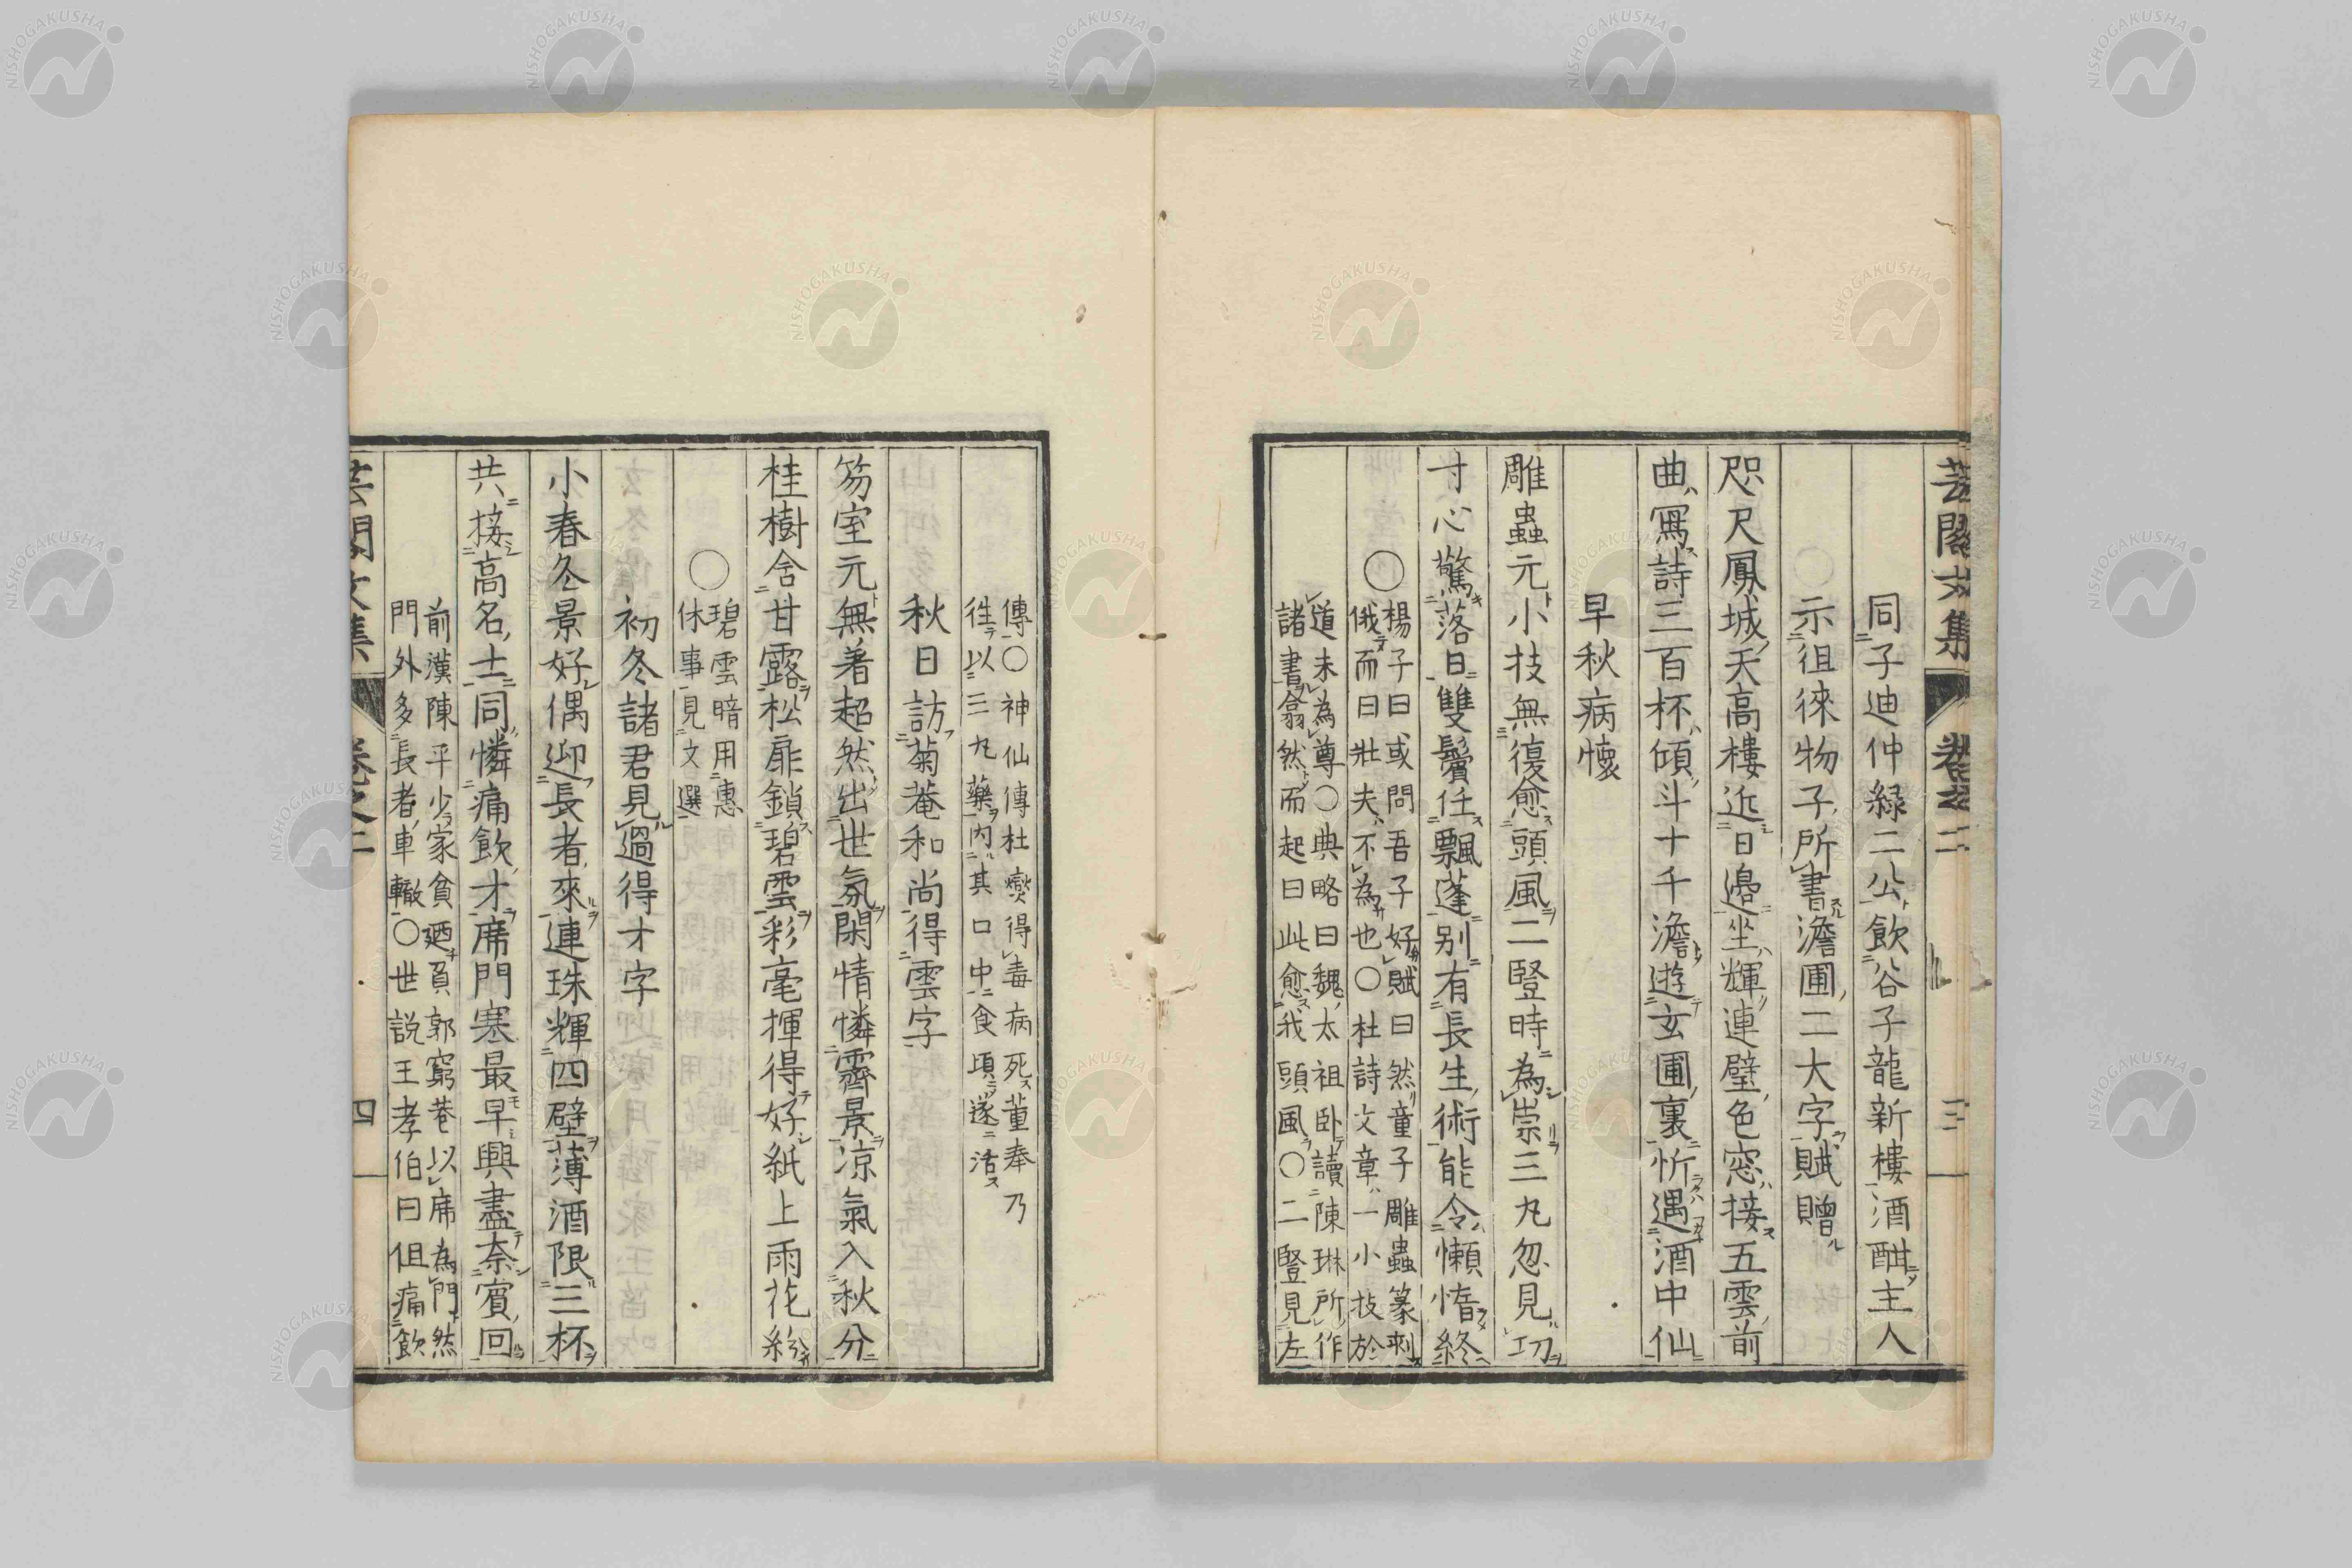 芸閣文集 卷之二 三
同子迪仲緑二公飲谷子龍新樓酒酣主人
示徂徠物子所書澹圃二大字賦贈
咫尺鳳城天高樓近日邊坐輝連璧色窓接五雲前
曲寫詩三百杯傾斗十千澹遊玄圃裏忻遇酒中仙
早秋病懷
雕蟲元小技無復愈頭風二豎時為崇三丸忽見功
寸心驚落日雙鬢任飄蓬別有長生術能令懶惰終
○楊子曰或問吾子好賦曰然童子雕蟲篆刺
俄而曰壯夫不為也○杜詩文章一小技於
道未為尊○典略曰魏太祖卧讀陳琳所作
諸書翕然而起曰此愈我頭風○二豎見左
傳○神仙傳杜燮得毒病死董奉乃
徃以三丸藥内其口中食頃遂活
秋日訪菊菴和尚得雲字
芴室元無著超然出世氛閑情憐霽景凉氣入秋分
桂樹含甘露松扉鎖碧雲彩毫揮得好紙上雨花紛
○碧雲暗用惠
休事見文選
初冬諸君見過得才字
小春冬景好偶迎長者來連珠輝四壁薄酒限三杯
共接高名士同憐痛飲才席門寒最早興盡奈賓回
前漢陳平少家貧廼負郭窮巷以席為門然
門外多長者車轍○世説王孝伯曰但痛飲
芸閣文集 卷之二 四